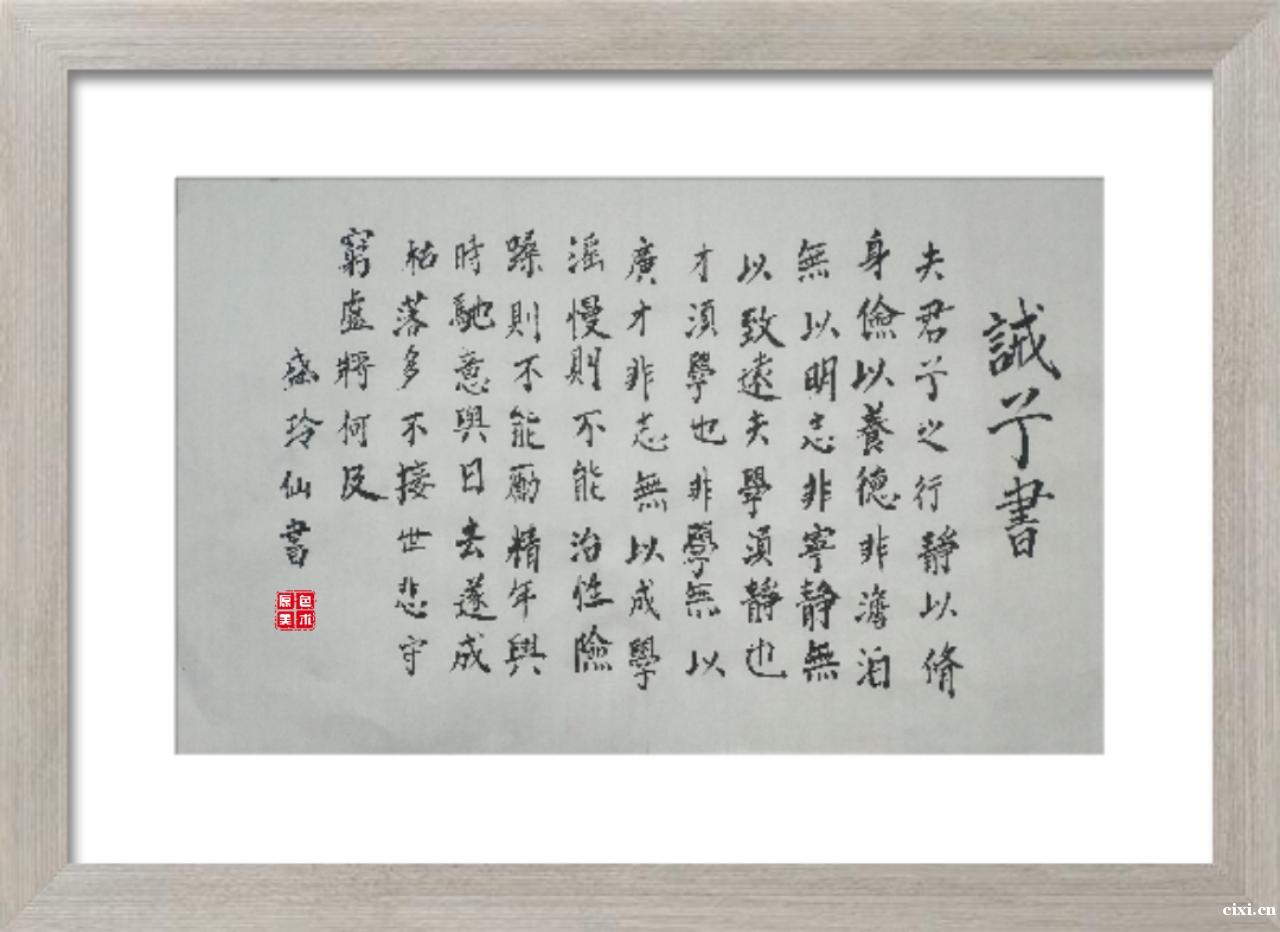 誡子書
夫君子之行靜以脩
身儉以養德非澹泊
無以明志非寧靜無
以致遠夫學須靜也
才須學也非學無以
廣才非志無以成學
滛慢則不能治性險
躁則不能勵精年與
時馳意與日去遂成
枯落多不接世悲守
窮廬將何及
盛玲仙書
原色
美术
cixi.cn